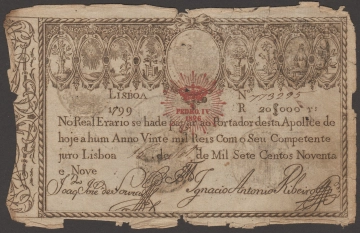 LISBOA
1799
R 20$000 rs
PEDRO IV
1826
No Real Erario se hade pagar ao Portador desta Apolice de
hoje a hum Anno Vinte mil Reis Com o Seu Competente
juro Lisboa de de Mil Sete Centos Noventa
e Nove
Ignacio Antonio Ribeiro